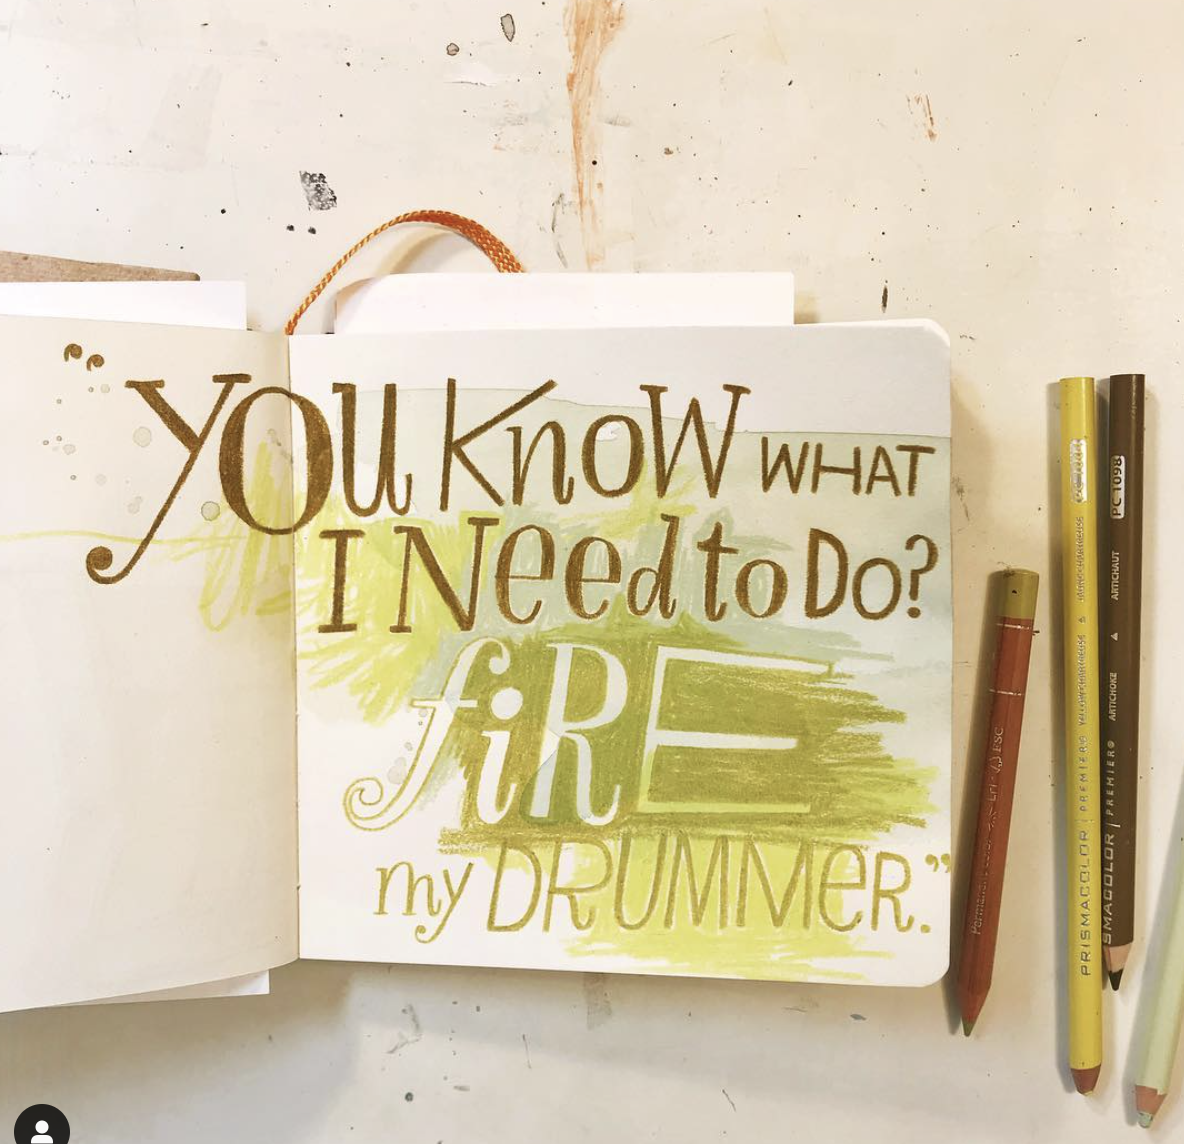 “YOU KNOW WHAT
I Need to Do?
fiRE
my DRUMMER.”
PRISMACOLOR | PREMIER®
PC 1098
SMACOLOR | PREMIER® ARTICHOKE ▲ ARTICHAUT